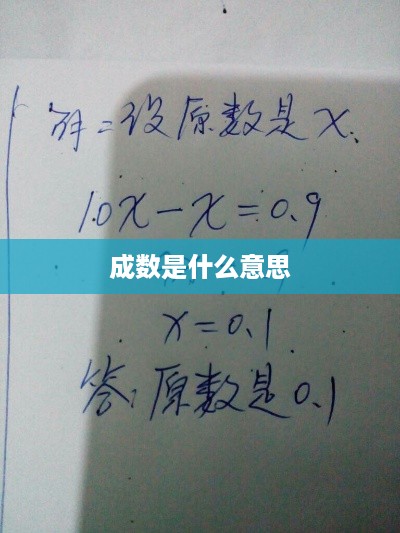 解：设原数是x.
10x-x=0.9
成数是什么意思
x=0.1
答:原数是0.1